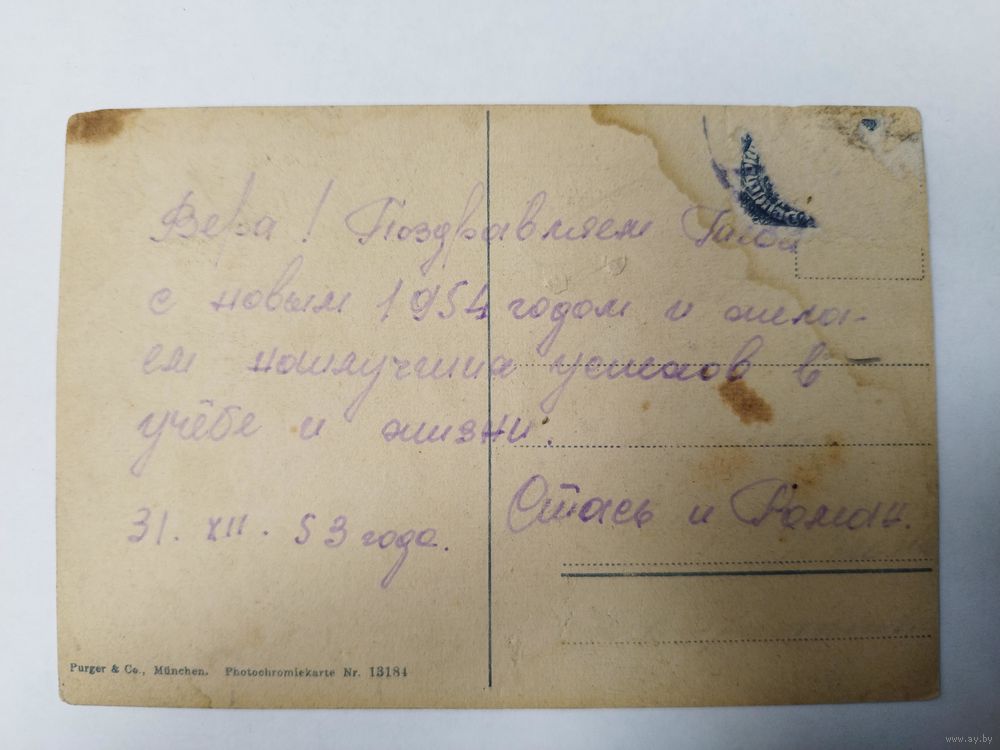 Вера! Поздравляем
с новым 1954 годом и жела-
ем наилучших успехов в
учёбе и жизни.
Стась и Роман.
31. XII. 53 года.
Purger & Co., München. Photochromiekarte Nr. 13184
www.ay.by